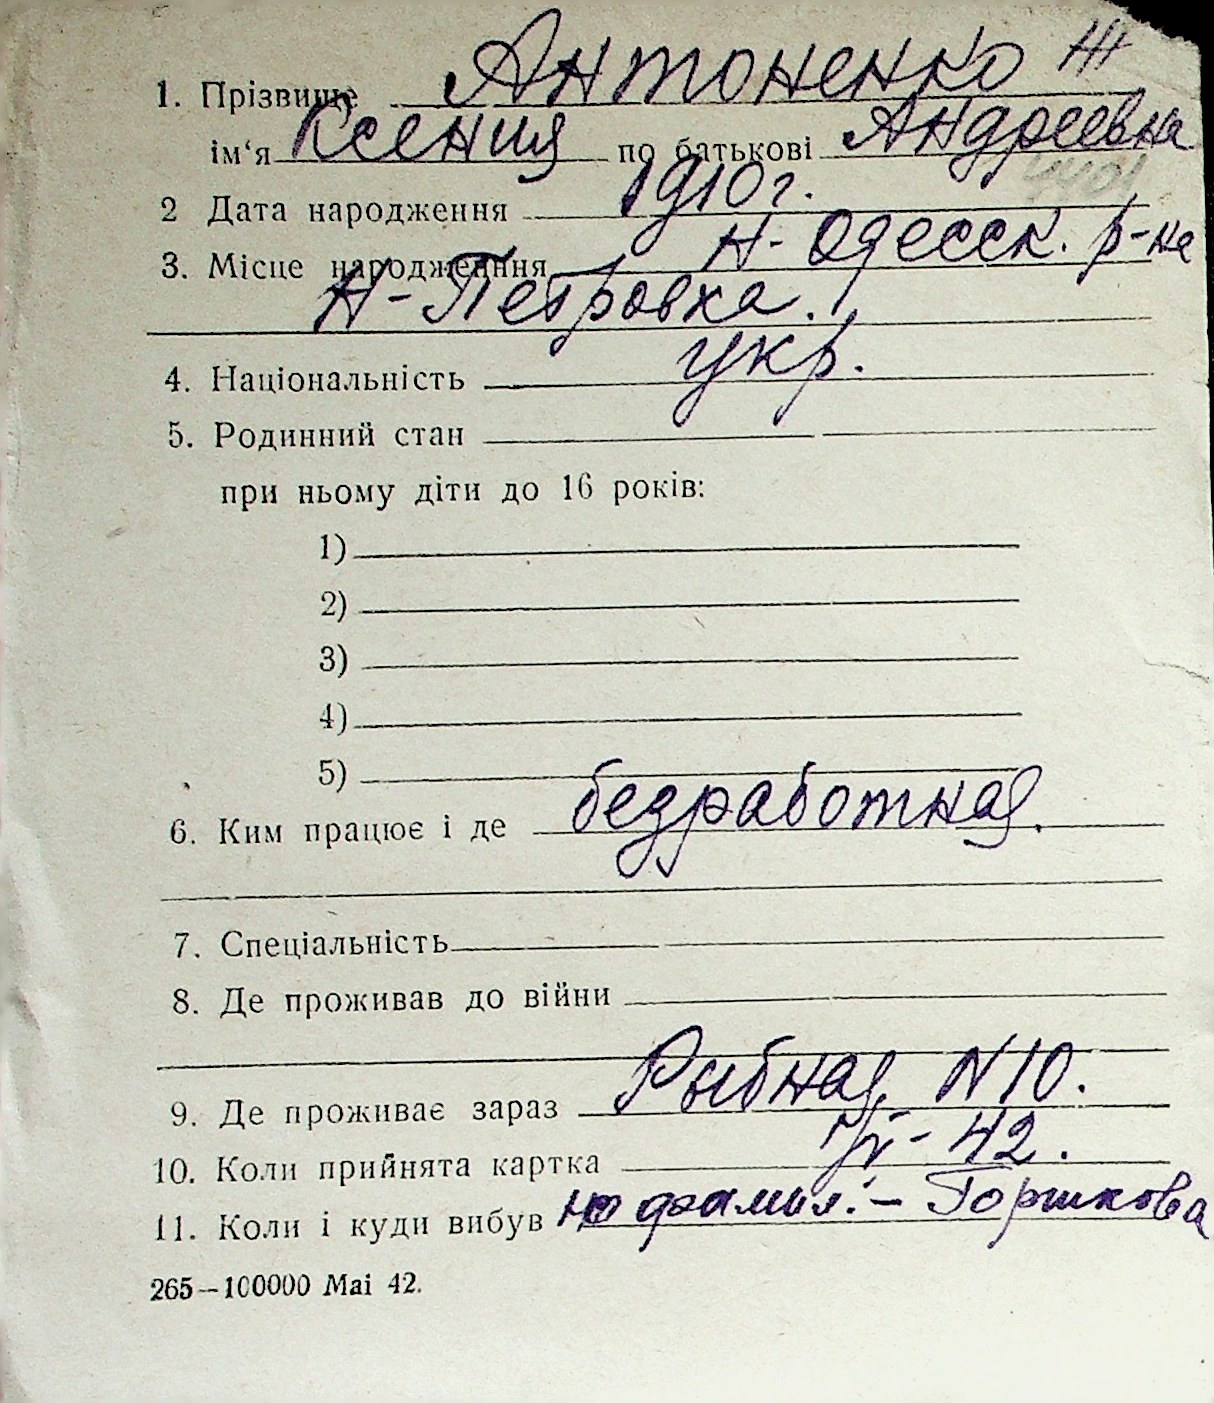 1. Прізвище Антоненко
ім'я Ксения по батькові Андреевна
2 Дата народження 1910 г.
3. Місце народженння Н-Одесск. р-на
Н-Петровка.
4. Національність укр.
5. Родинний стан
при ньому діти до 16 років:
1)
2)
3)
4)
5)
6. Ким працює і де безработная.
7. Спеціальність
8. Де проживав до війни
9. Де проживає зараз Рыбная N 10.
10. Коли прийнята картка 42.
11. Коли і куди вибув фамил. - Горшкова
265—100000 Mai 42.